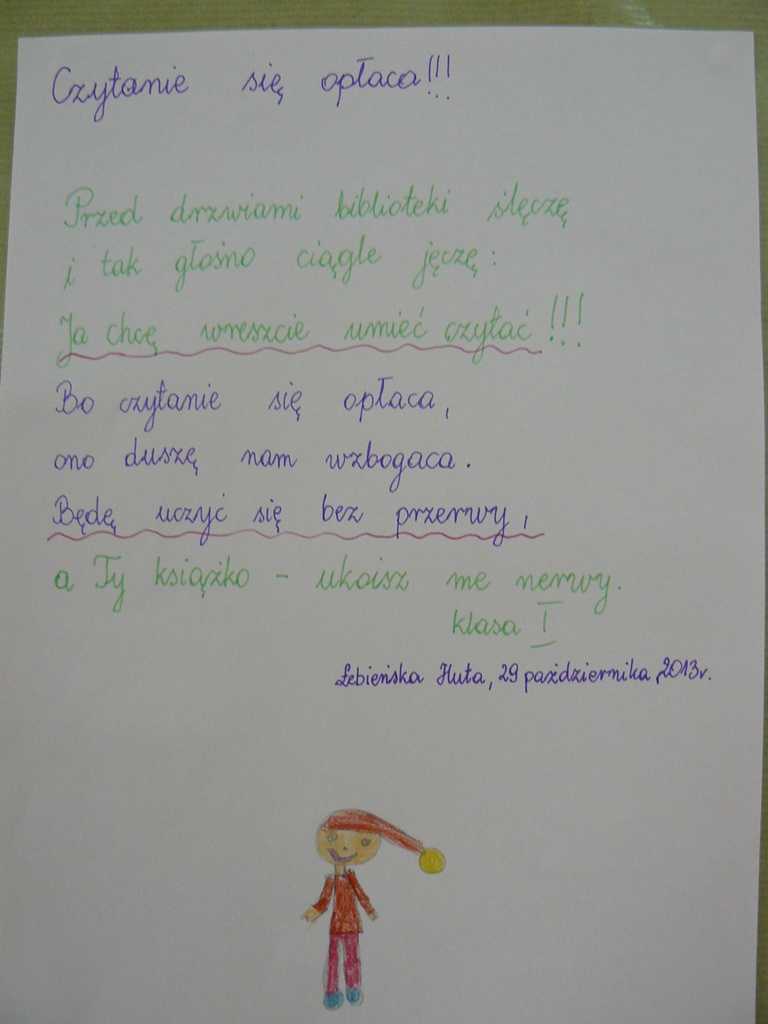 Czytanie się opłaca!!!
Przed drzwiami biblioteki ślęczę
i tak głośno ciągle jęczę:
Ja chcę wreszcie umieć czytać!!!
Bo czytanie się opłaca,
ono duszę nam wzbogaca.
Będę uczyć się bez przerwy,
a Ty książko - ukoisz me nerwy.
klasa I
Łebieńska Huta, 29 października 2013r.